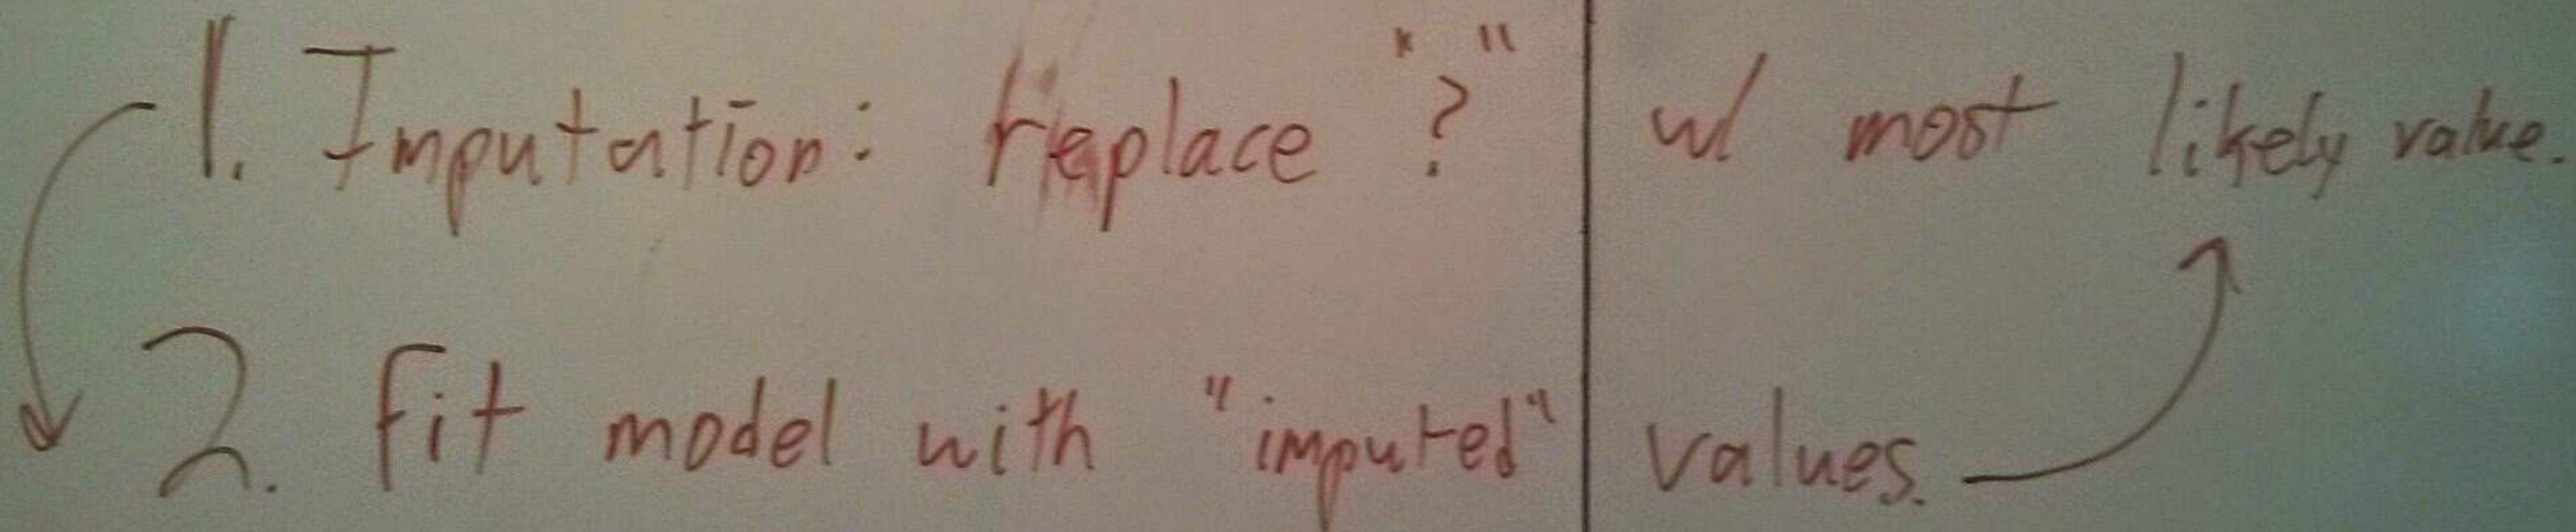 1. Imputation: replace "?" w/ most likely value.
2. fit model with "imputed" values.